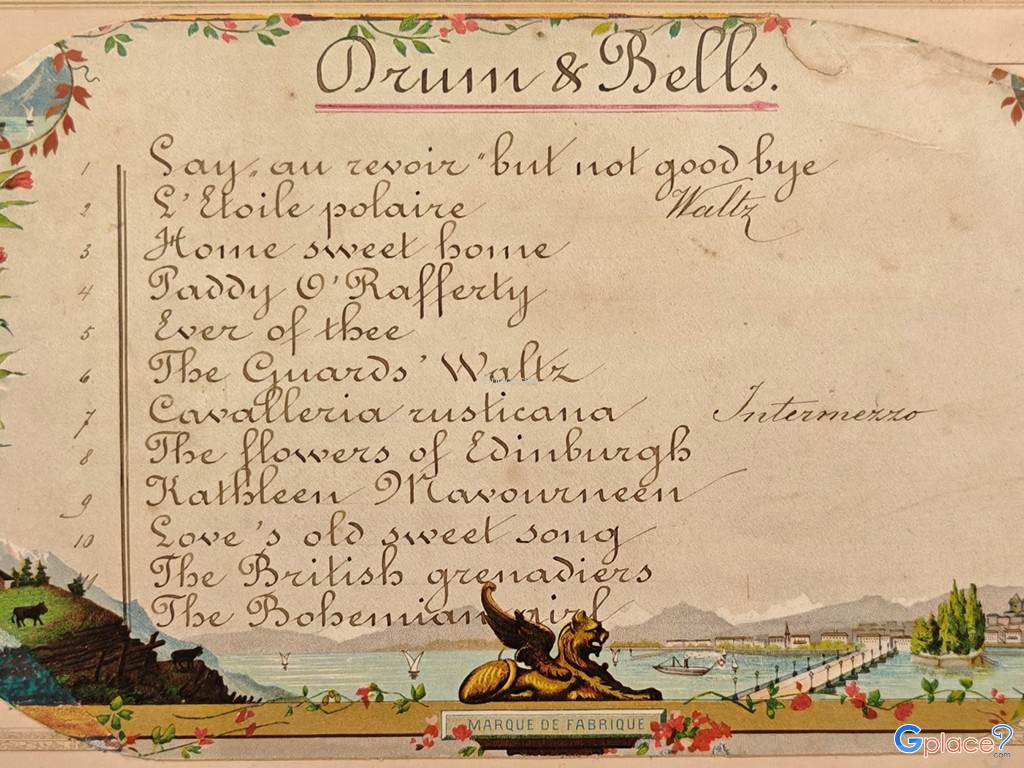 Drum & Bells.
1 Say „au revoir" but not good bye
2 L'Etoile polaire Waltz
3 Home sweet home
4 Paddy O'Rafferty
5 Ever of thee
6 The Guards' Waltz
7 Cavalleria rusticana Intermezzo
8 The flowers of Edinburgh
9 Kathleen Mavourneen
10 Love's old sweet song
11 The British grenadiers
The Bohemian girl
MARQUE DE FABRIQUE
Gplace
.com